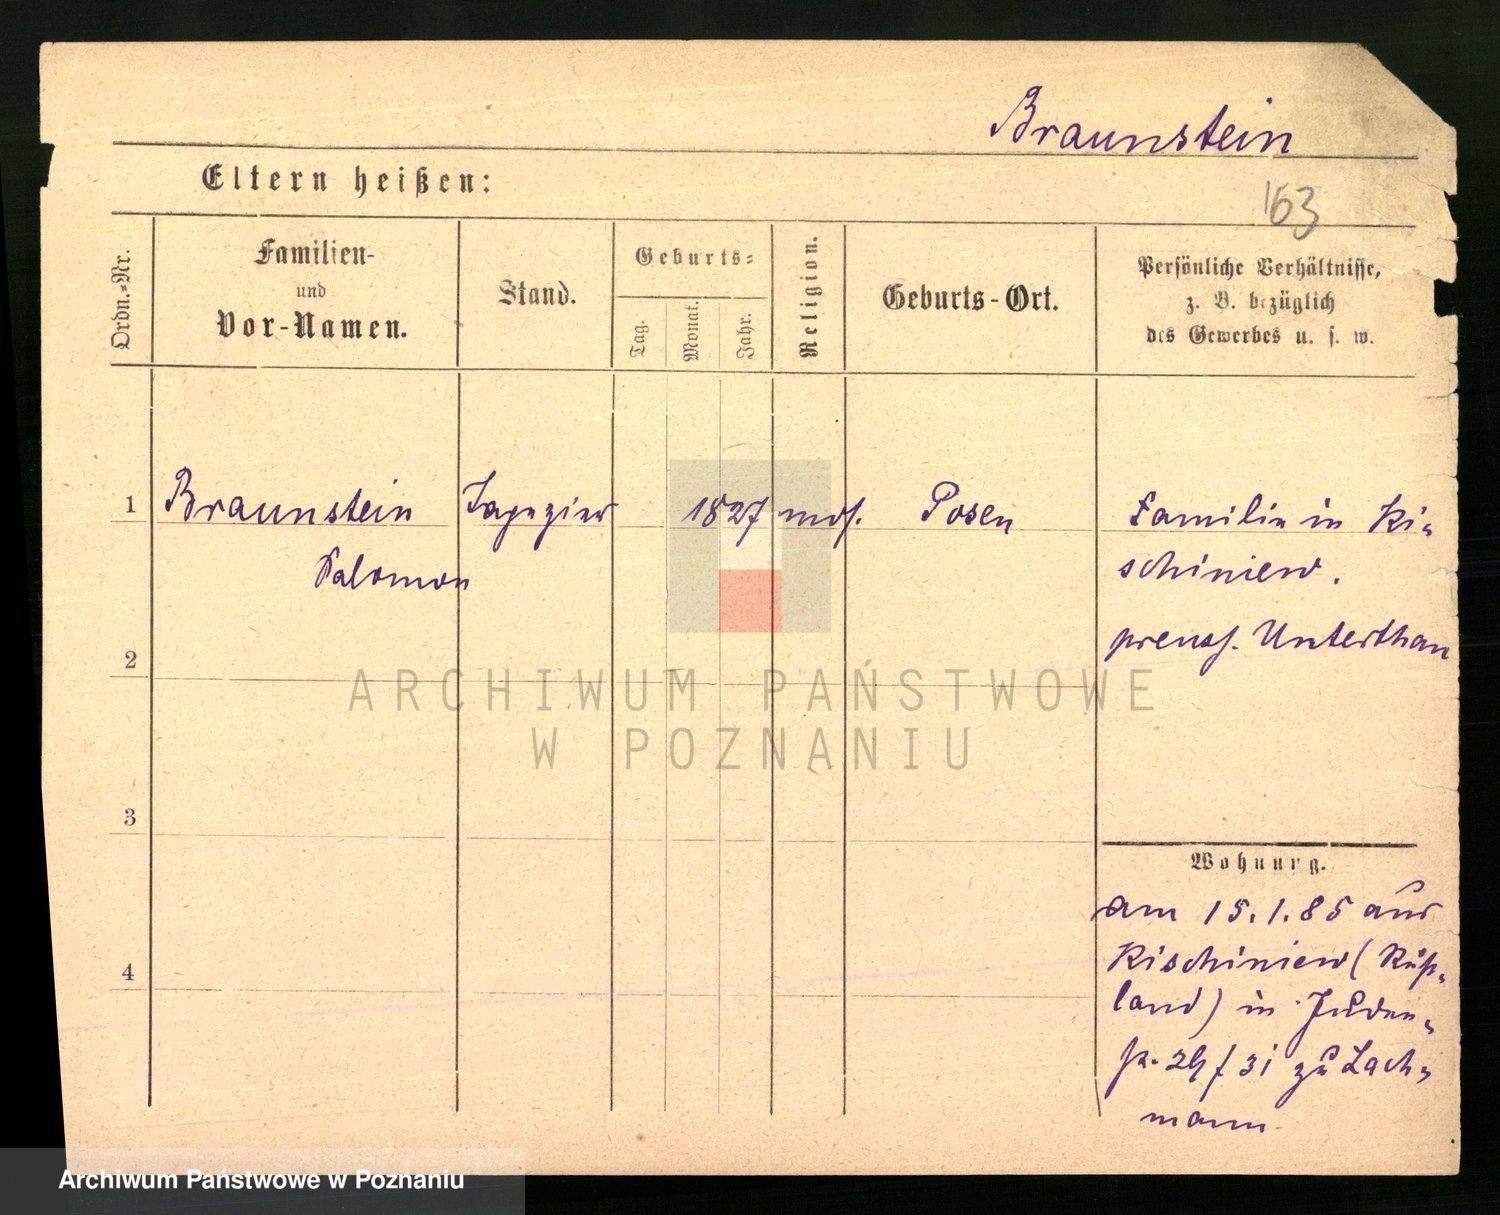 Braunstein
Eltern heißen:
163
Ordn.-Nr.
Familien-
und
Vor-Namen.
Stand.
Geburts-
Tag.
Monat.
Jahr.
Religion.
Geburts-Ort.
Persönliche Verhältnisse,
z. B. bezüglich
des Gewerbes u. s. w.
1
Braunstein
Tapezier
1827
mos.
Posen
Familie in Ki-
Salomon
schiniew.
preuss. Unterthan
2
3
4
Wohnung.
am 15.1.85 aus
Kischiniew (Ruß-
land) in Juden-
str. 31 zu Lach-
mann
ARCHIWUM PAŃSTWOWE
W POZNANIU
Archiwum Państwowe w Poznaniu